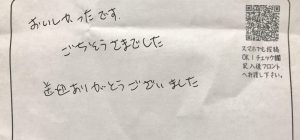 おいしかったです。
ごちそうさまでした
送迎ありがとうございました
スマホでも投稿
OK!チェック欄
記入後フロント
へお渡し下さい。